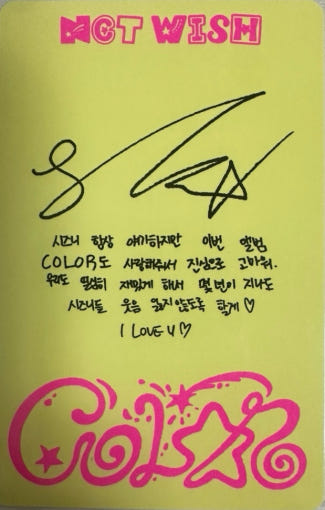 NCT WISH
시즈니 항상 얘기하지만 이번 앨범
COLOR도 사랑해줘서 진심으로 고마워.
우리도 열심히 재밌게 해서 몇 번이 지나도
시즈니들 웃음 잃지않도록 할게♡
I LOVE U♡
COLOR